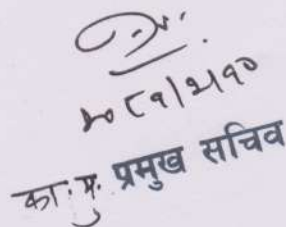 २०८१/२/१०
का. मु. प्रमुख सचिव